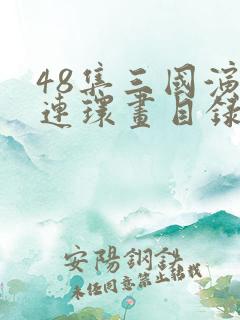 48集三國演
連環畫目錄
安陽鋼鉄
未任同意禁止转载